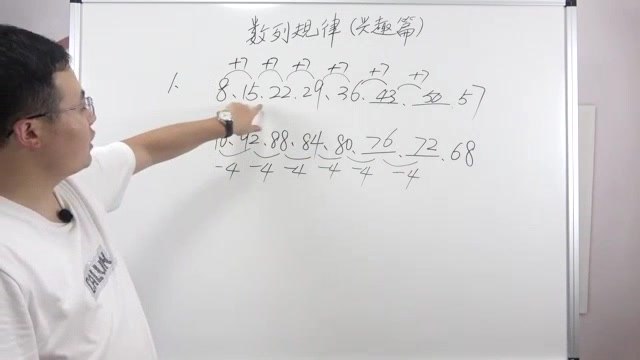 数列规律(兴趣篇)
+7 +7 +7 +7 +7 +7
1、 8、15、22、29、36、43、50、57
92、88、84、80、76、72、68
-4 -4 -4 -4 -4 -4